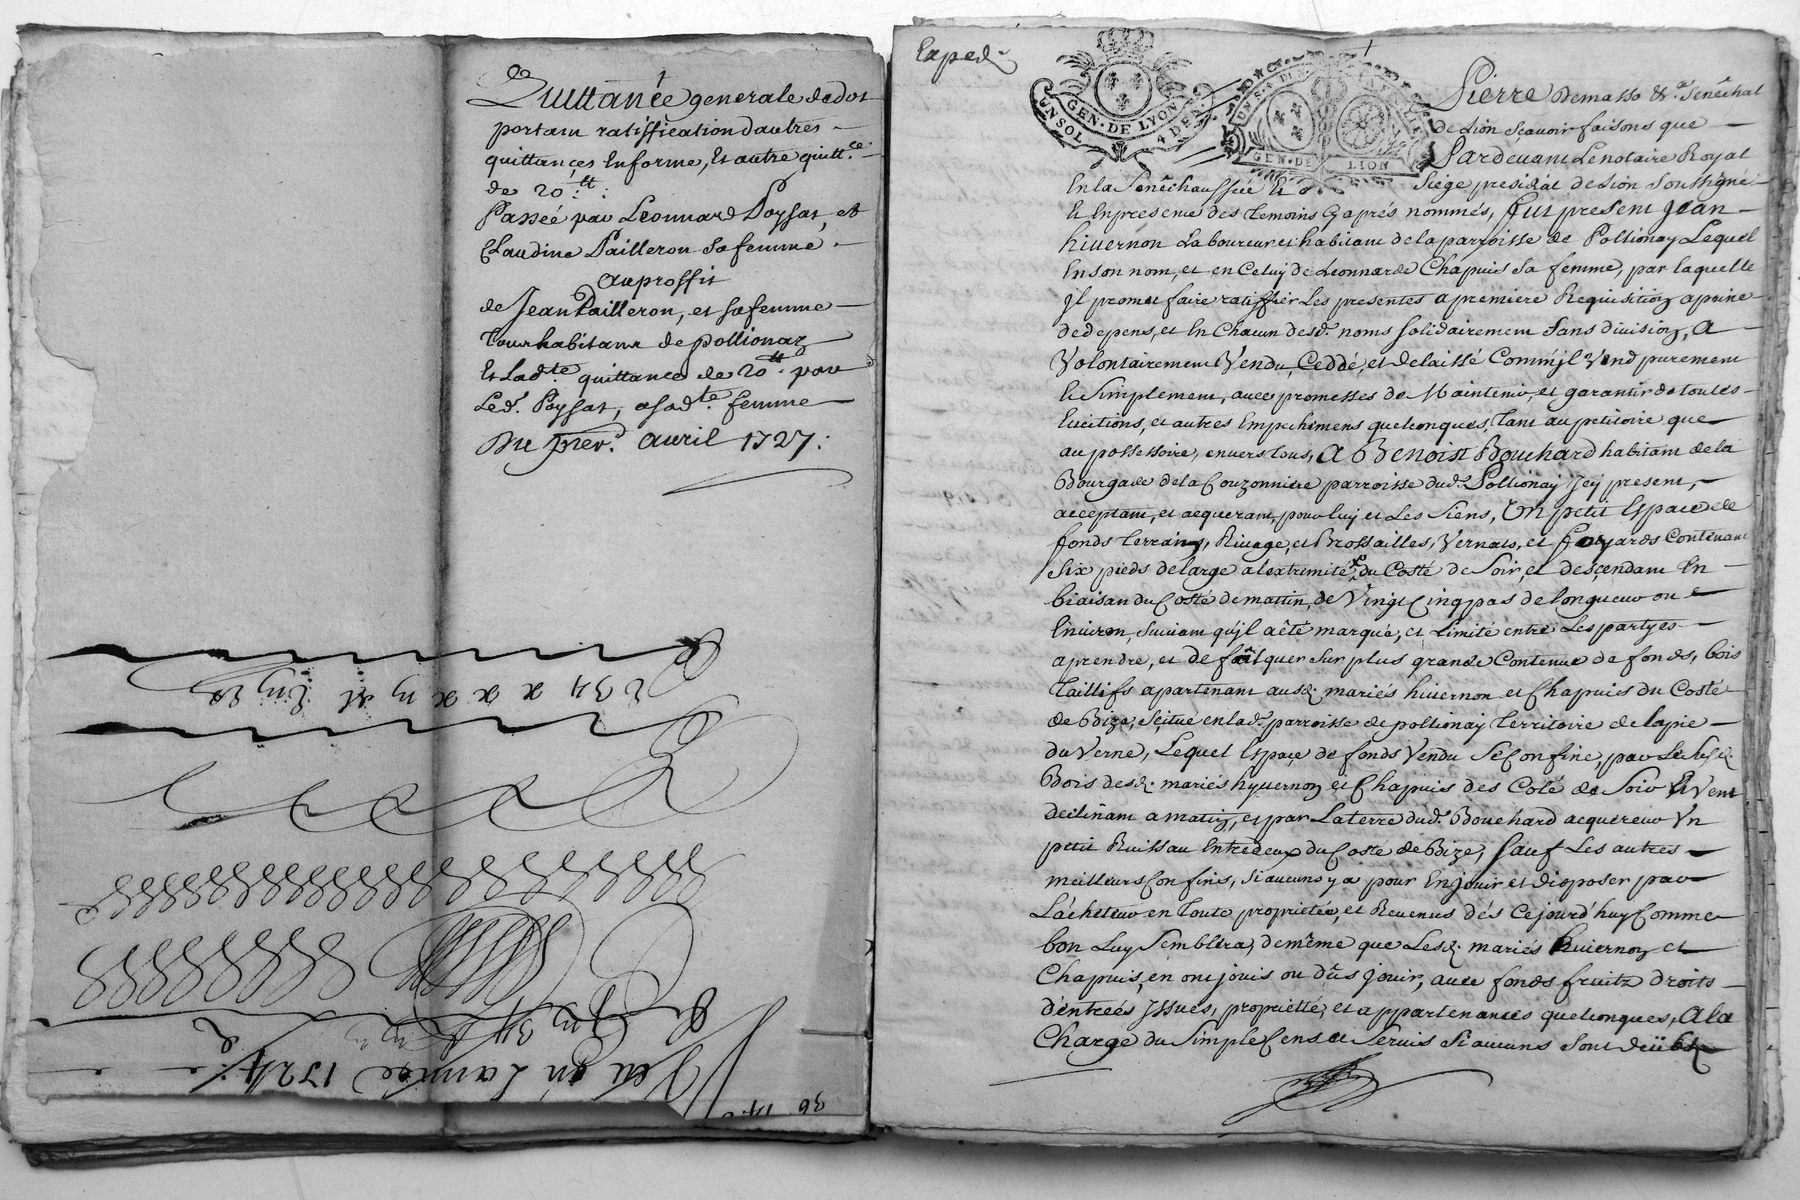 Quittance generale de dot
portant ratiffication dautres
quittances en forme, Et autre quitt.ce
de 20.tt:
Passeé par Leonnard Poysat, et
Claudine Pailleron sa femme.
au proffit
de Jean Pailleron, et sa femme
tous habitans de pollionaz
Et Lad.te quittance de 20.tt par
Led. Poysat, a sad.te femme
Du prer. avril 1727:
en L'année 1724
36
Exped.
UN SOL GEN·DE LYON 4 DEN.
GEN·DE LION
Pierre Demasso &.a Senêchal
de Lion Sçavoir faisons que
Pardevant Le notaire Royal
En la Senêchaussée Et Siége presidial de Lion soussigné
Et En presence des temoins Cy aprés nommés, fut present Jean
hiuernon Laboureur et habitant de la parroisse de Pollionay Lequel
En son nom, et en Celuy de Leonnarde Chapuis sa femme, par laquelle
il promet faire ratiffier Les presentes a premiere Requisition a peine
de depens, et En Chacun desd. noms solidairement sans division, A
Volontairement Vendu, Ceddé, et delaissé Comm'jl Vend purement
Et Simplement, avec promesses de Maintenir, et garantir de toutes
Euictions, et autres Empechemens quelconques, tant au petitoire que
au possessoire, envers tous, A Benoist Bouchard habitant de la
Bourgade de la Couzonniere parroisse dud. Pollionay Jcy present,
acceptant, et acquerant, pour luy et Les Siens, Un petit Espace de
fonds terrain, Rivage, et Brossailles, Vernats, et foyards Contenant
Six pieds de large a lextremité du Costé de Soir, et descendant En
biaisan du Costé de mattin, de Vingt Cinq pas de longueur ou
Environ, suivant qu'jl a êté marqué, et Limité entre Les partyes
a prendre, et defalquer sur plus grande Contenue de fonds, bois
Taillifs apartenant ausd. mariés hiuernon et Chapuis du Costé
de Bize, scitué en lad. parroisse de pollionay territoire de lapie
du Verne, Lequel Espace de fonds Vendu se Confine, par Le
Bois desd. mariés hyuernon et Chapuis des Coté de Soir Et Vent
declinant a mattin, et par La terre dud. Bouchard acquereur Un
petit Ruissau Entredeux du Coste de Bize, Sauf Les autres
meilleurs Confins, si aucuns y a pour En jouir et disposer par
L'acheteur en toute proprietée, et Revenus dés Cejourd'huy Comme
bon Luy Semblera, de même que Lesd. mariés hiuernon et
Chapuis, en ont jouis ou dûs jouir, avec fonds fruitz droits
d'entreés Jssues, proprietté, et appartenances quelconques, A la
Charge du Simple Cens et Servis Si aucuns sont deübs